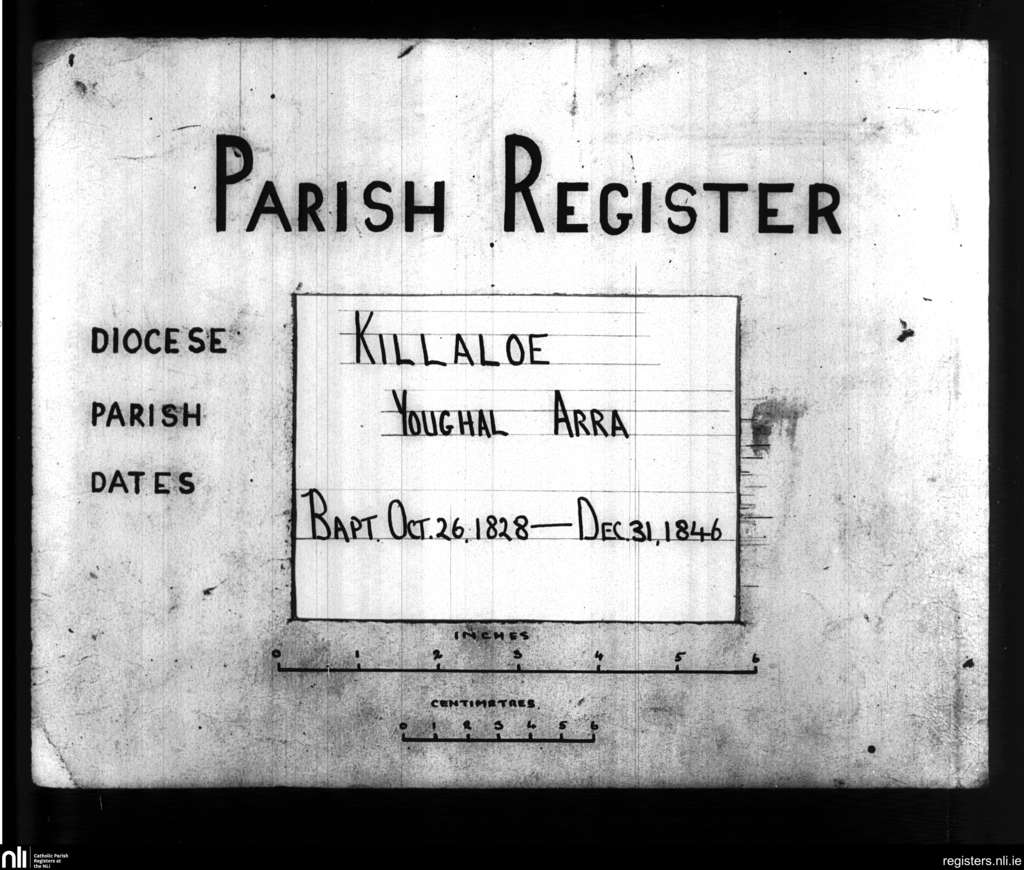 PARISH REGISTER
DIOCESE KILLALOE
PARISH YOUGHAL ARRA
DATES
BAPT. OCT. 26, 1828 — DEC. 31, 1846
INCHES
0 1 2 3 4 5 6
CENTIMETRES
0 1 2 3 4 5 6
nli Catholic Parish
Registers at
the NLI
registers.nli.ie